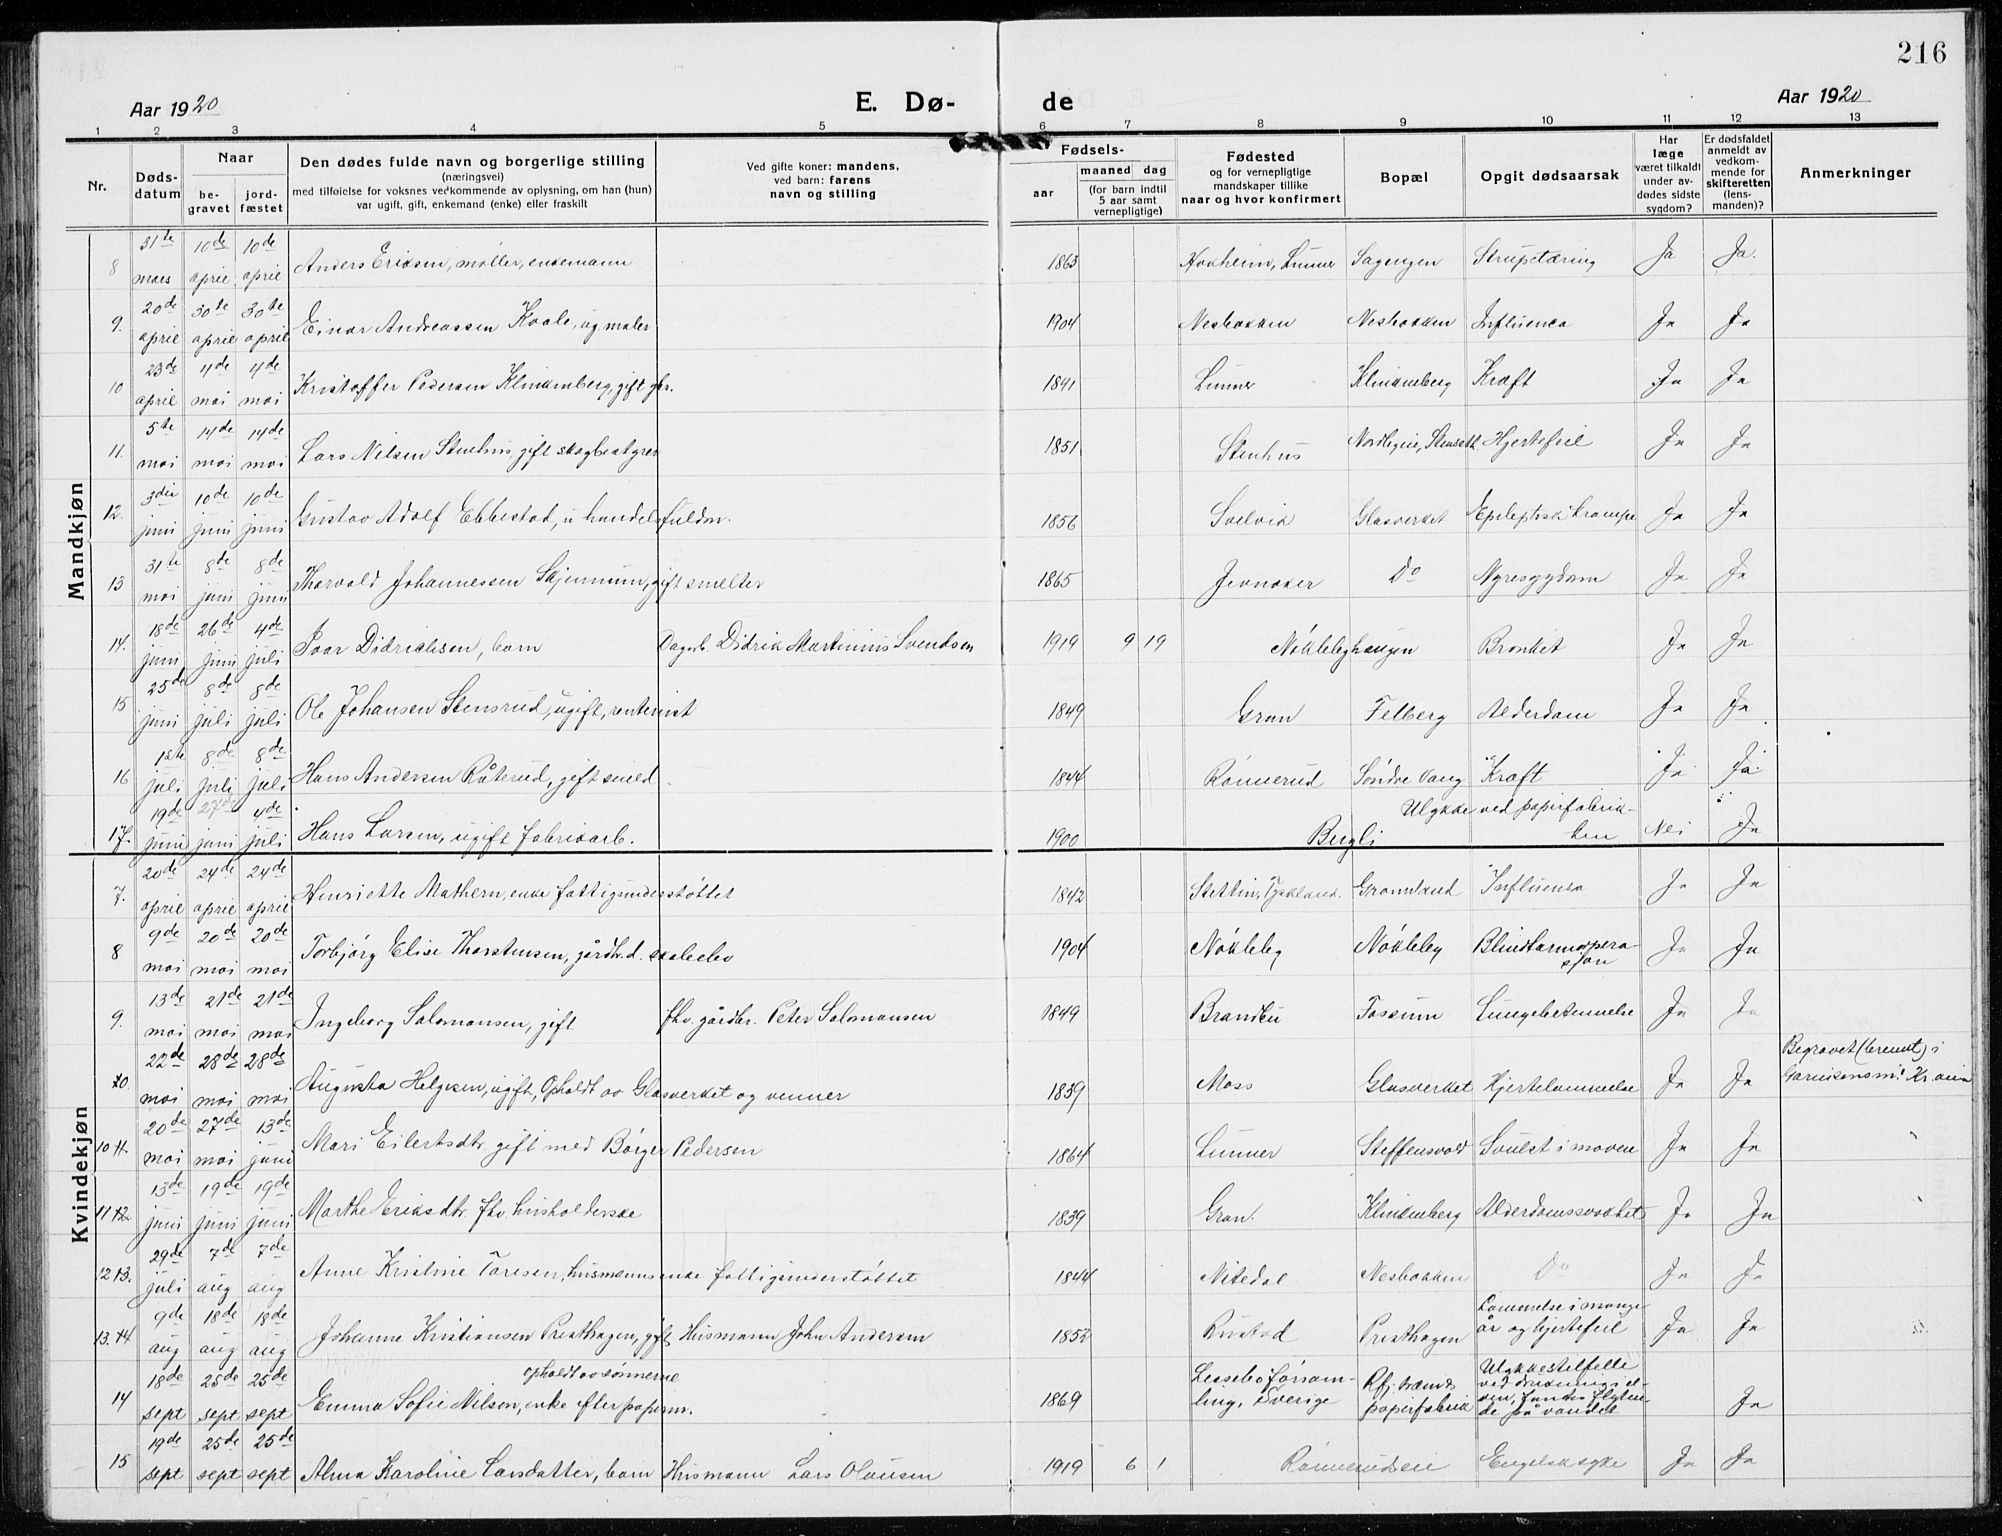 216
Aar 1920 E. Dø- de Aar 1920
1 2 3 4 5 6 7 8 9 10 11 12 13
Nr.
Døds-
datum
Naar
be-
gravet
jord-
fæstet
Den dødes fulde navn og borgerlige stilling
(næringsvei)
med tilføielse for voksnes vedkommende av oplysning, om han (hun)
var ugift, gift, enkemand (enke) eller fraskilt
Ved gifte koner: mandens,
ved barn: farens
navn og stilling
Fødsels-
aar
maaned dag
(for barn indtil
5 aar samt
vernepligtige)
Fødested
og for vernepligtige
mandskaper tillike
naar og hvor konfirmert
Bopæl
Opgit dødsaarsak
Har
læge
været tilkaldt
under av-
dødes sidste
sygdom?
Er dødsfaldet
anmeldt av
vedkom-
mende for
skifteretten
(lens-
manden)?
Anmerkninger
Mandkjøn
8 31te mars 10de april 10de april Anders Eriksen, møller, enkemann 1863 Hokheim, Lunner Sagengen Strupetæring Ja Ja.
9. 20de april 30te april 30te april Einar Andreassen Kvale, ug maler 1904 Nesbakken Nesbakken Influenca Ja Ja
10 23de april 4de mai 4de mai Kristoffer Pedersen Klinkenberg, gift gbr. 1841 Lunner Klinkenberg Kræft Ja Ja
11. 5te mai 14de mai 14de mai Lars Nilsen Stenhus, gift 1851 Stenhus Hjertefeil Ja Ja
12. 3die juni 10de juni 10de juni Gustav Adolf Ebbestad, u handelsfuldm. 1856 Svelvik Glasverket Epileptisk krampe Ja Ja
13 31te mai 8de juni 8de juni Thorvald Johannessen Skjennum, gift smelter 1865 Jevnaker Do Nyresygdom Ja Ja
14. 18de juni 26de juni 4de juli Ivar Didrichsen, barn Dagarb. Didrik Martinius Svendsen 1919 9 19 Nøkleby­haugen Bronkit Ja Ja
15 25de juni 8de juli 8de juli Ole Johansen Stensrud, ugift, rentenist 1849 Gran Felberg Alderdom Ja Ja
16 1ste juli 8de juli 8de juli Hans Andersen Råterud, gift smed 1844 Rønnerud Søndre Vang Kræft Ja Ja.
17. 19de juni 27de juni 4de juli Hans Larsen, ugift fabrikarb. 1900 Bergli Ulykke ved papirfabrik-
ken Nei Ja
Kvindekjøn
7. 20de april 24de april 24de april Henriette Mathern, enke fattigunderstøttet 1842 Stettin, Tyskland. Grønnland Influensa Ja Ja
8 9de mai 20de mai 20de mai Torbjørg Elise Thorstensen, gårdbr.d. skoleelev 1904 Nøkleby Nøkleby Blindtarmopera
sjon Ja Ja
9. 13de mai 21de mai 21de mai Ingeborg Salomonsen, gift fhv. gårdbr. Peter Salomonsen 1849 Brandbu Fossum Lungebetennelse Ja Ja
10. 22de mai 28de mai 28de mai Augusta Helgesen, ugift, Opholdt av Glasverket og venner 1839 Moss Glasverket Hjertelammelse Ja Ja Begravet (brendt) i
Garnisonsm. Kr.ania
10 11. 20de mai 27de mai 13de juni Mari Eilertsdtr. gift med Børger Pedersen 1864 Lunner Steffensvold Svulst i maven Ja Ja
11 12. 13de juni 19de juni 19de juni Marthe Eriksdtr. fhv. husholderske 1839 Gran. Klinkenberg Alderdomssvakhet Ja Ja
12 13. 29de juli 7de aug 7de aug Anne Kristine Toresen, husmannsenke fattigunderstøttet 1844 Nitedal Nesbakken Do Ja Ja
13. 14 9de aug 18de aug 18de aug Johanne Kristiansen Presthagen, gift Husmann John Andersen 1852 Rustad Presthagen Lammelse i mange
år og hjertefeil Ja Ja
14 18de sept 25de sept 25de sept opholdt av sønnerne
Emma Sofie Nilson, enke efter papirm. 1869 Lessebo församling, Sverige papirfabrik Ulykkestilfelle
ved drukning i el-
ven, fundet flyten-
de på vandet Ja
15 19de sept 25de sept 25de sept Alma Karoline Larsdatter, barn Husmann Lars Olausen 1919 6 1 Rønnerudseie Engelsk syke Ja Ja